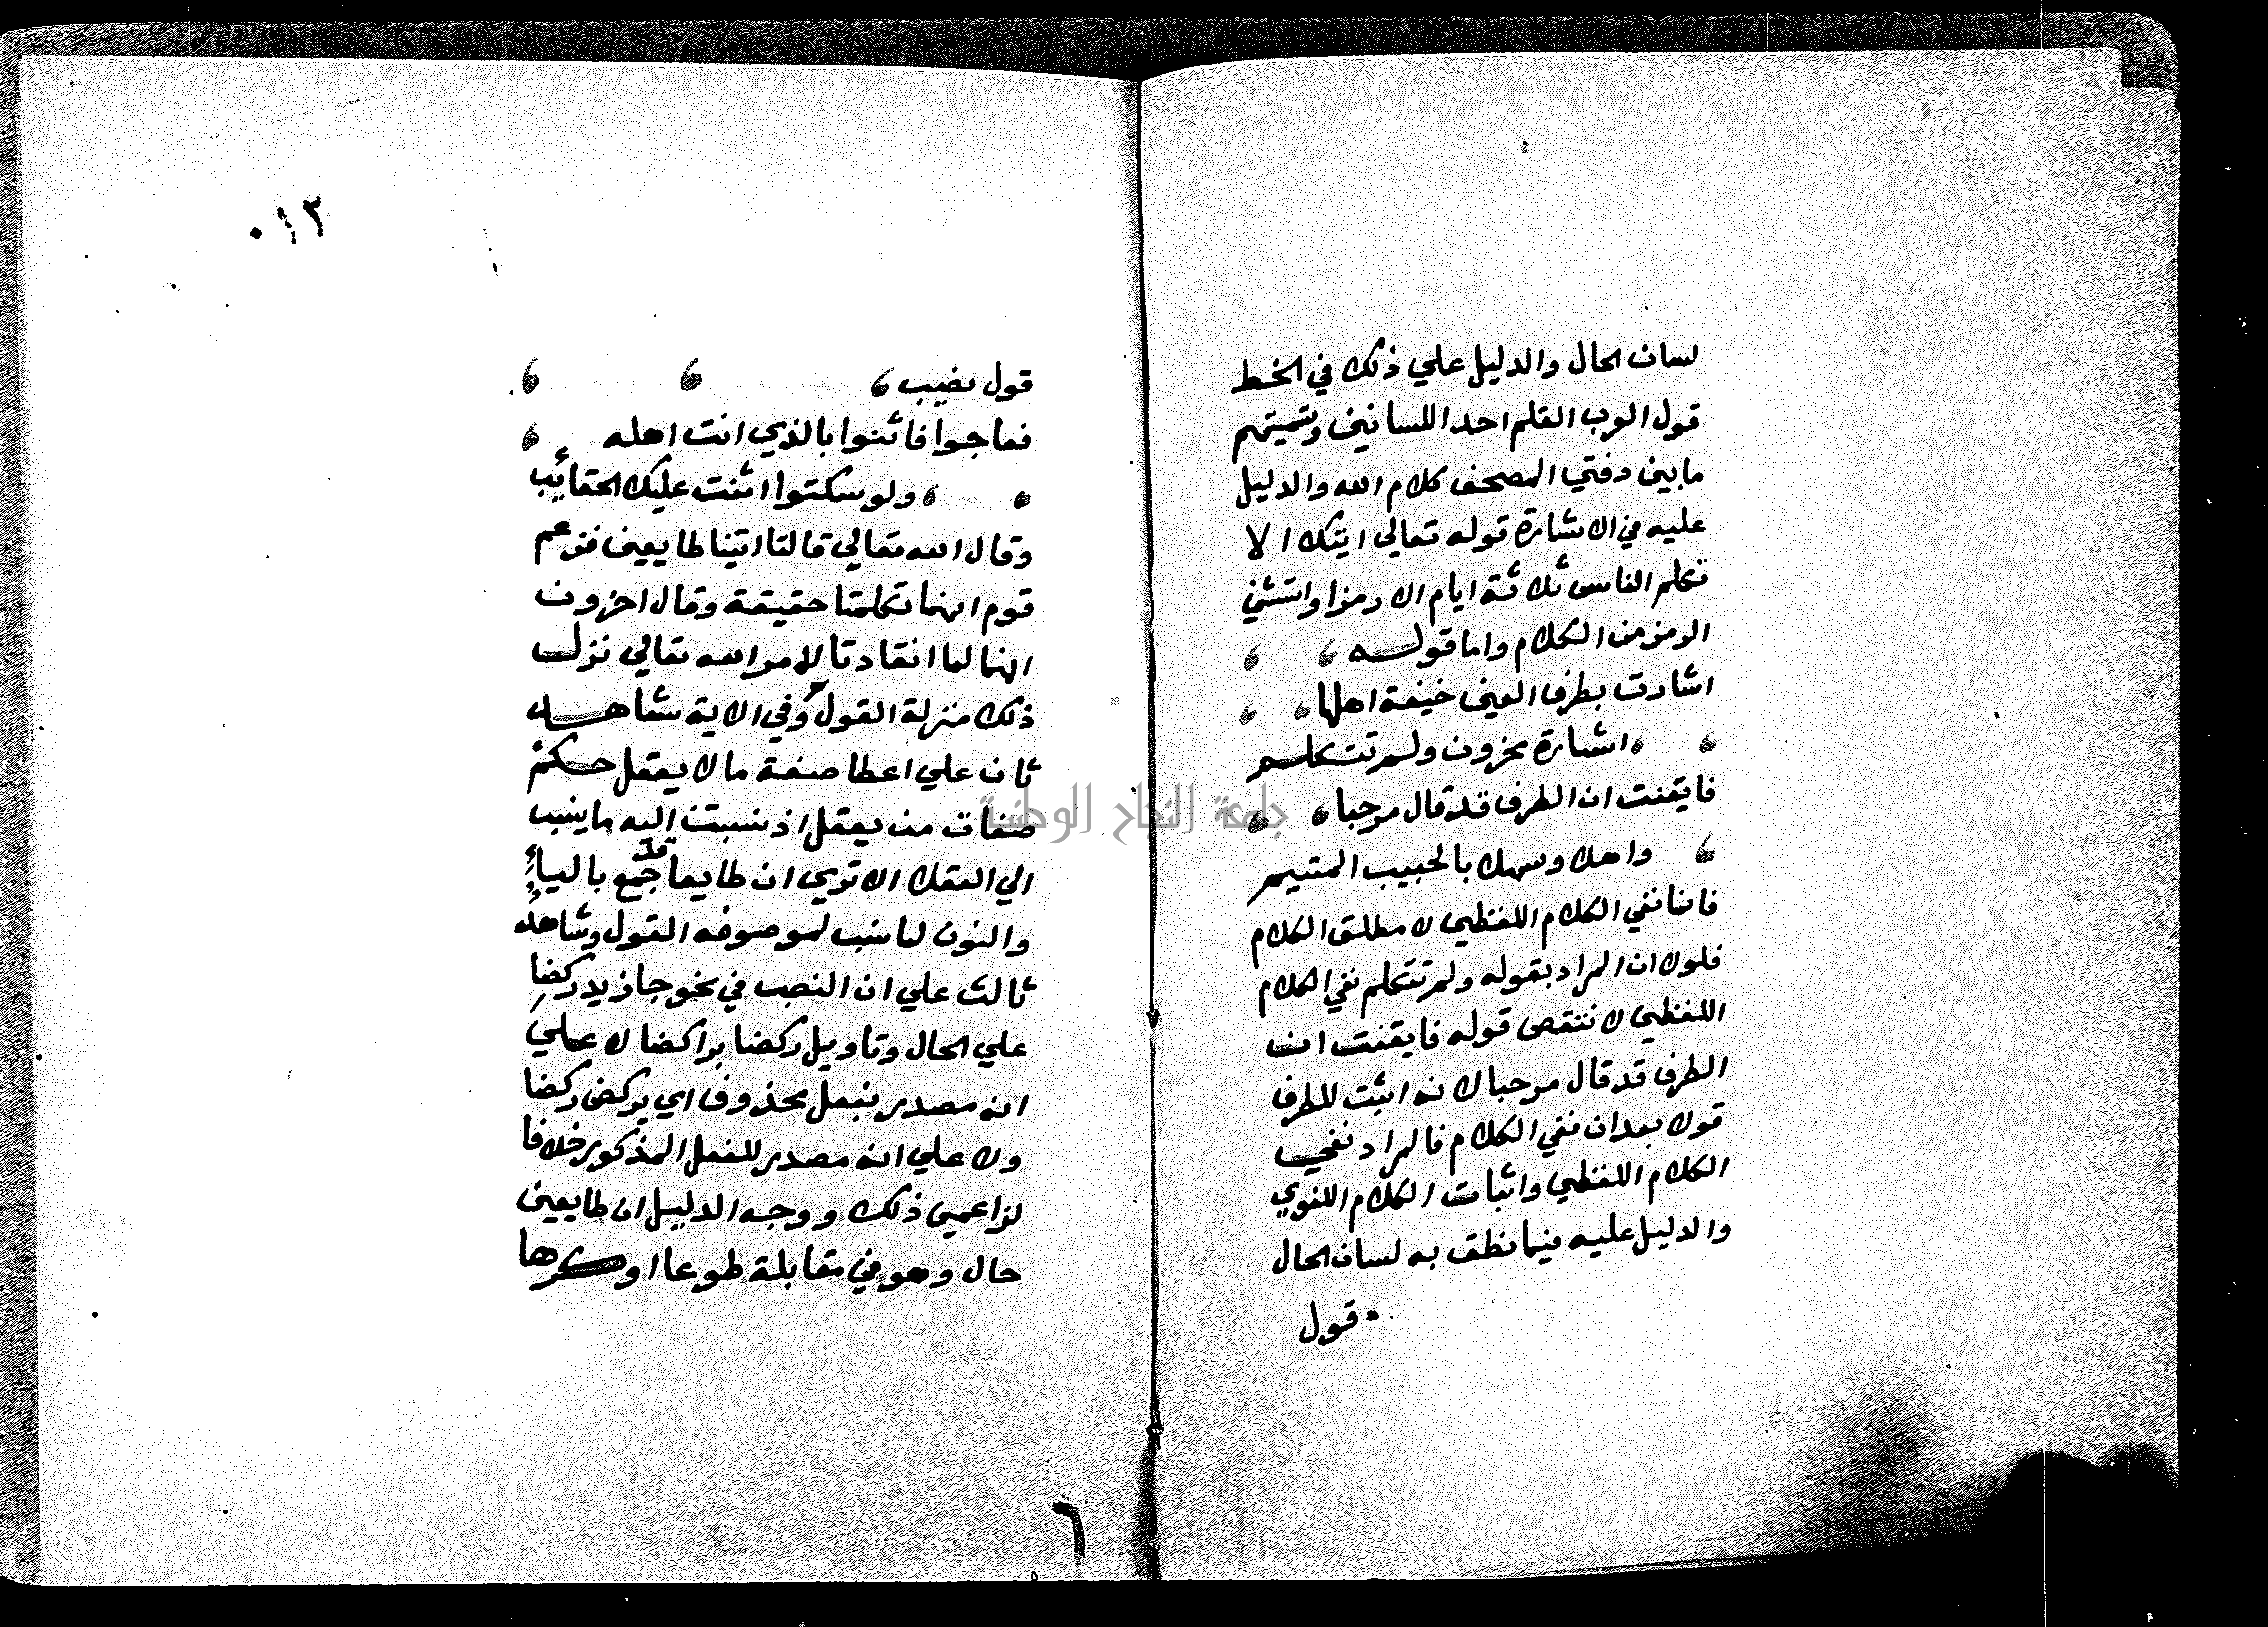 لسان الحال والدليل علي ذلك في الخط
قول العرب القلم احد اللسانين وتسميتهم
ما بين دفتي المصحف كلام الله والدليل
عليه في الاشارة قوله تعالي ايتك الا
تكلم الناس ثلاثة ايام الا رمزا واستثني
الرمز من الكلام واما قوله
اشارت بطرف العين خيفة اهلها
اشارة محزون ولم تتكلم
فايقنت ان الطرف قد قال مرحبا
واهلا وسهلا بالحبيب المتيم
فانما نفي الكلام اللفظي لا مطلق الكلام
فلولا ان المراد بقوله ولم تتكلم نفي الكلام
اللفظي لانتقص قوله فايقنت ان
الطرف قد قال مرحبا لانه اثبت للطرف
قولا بعد ان نفي الكلام فالمراد نفي
الكلام اللفظي واثبات الكلام اللغوي
والدليل عليه فيما نطق به لسان الحال
قول
٠١٢
قول نصيب
فعاجوا فاثنوا بالذي انت اهله
ولو سكتوا اثنت عليك الحقائب
وقال الله تعالي قالتا اتينا طايعين فزعم
قوم انهما تكلمتا حقيقة وقال اخرون
انهما لما انقادتا لامر الله تعالي نزل
ذلك منزلة القول وفي الاية شاهد
ثان علي اعطا صفة ما لا يعقل حكم
صفات من يعقل اذ نسبت اليه ما ينسب
الي العقلا الا تري ان طايعا قد جمع بالياء
والنون لما نسب لموصوفه القول وشاهد
ثالث علي ان النصب في نحو جا زيد ركضا
علي الحال وتاويل ركضا براكضا لا علي
انه مصدر بفعل محذوف اي يركض ركضا
ولا علي انه مصدر للفعل المذكور خلافا
لزاعمي ذلك ووجه الدليل ان طايعين
حال وهو في مقابلة طوعا او كرها
٦
جامعة النجاح الوطنية